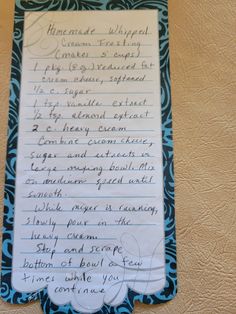 Homemade Whipped
Cream Frosting
(makes 5 cups)
1 pkg (8 oz) reduced fat
cream cheese, softened
1/2 c. sugar
1 tsp vanilla extract
1/2 tsp almond extract
2 c. heavy cream
Combine cream cheese,
sugar and extracts in
large mixing bowl. Mix
on medium speed until
smooth.
While mixer is running,
slowly pour in the
heavy cream
Stop and scrape
bottom of bowl a few
times while you
continue